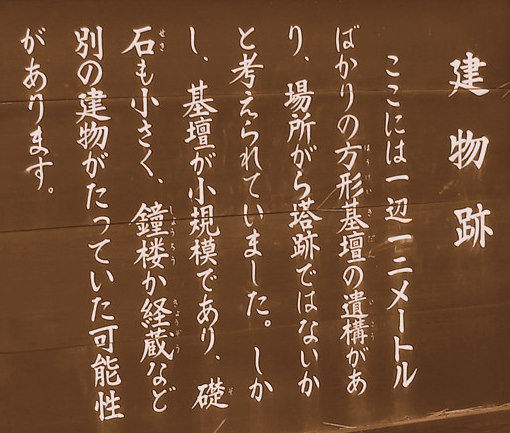 建物跡
ここには一辺一二メートル
ばかりの方形基壇の遺構があ
り、場所がら塔跡ではないか
と考えられていました。しか
し、基壇が小規模であり、礎
石も小さく、鐘楼か経蔵など
別の建物がたっていた可能性
があります。